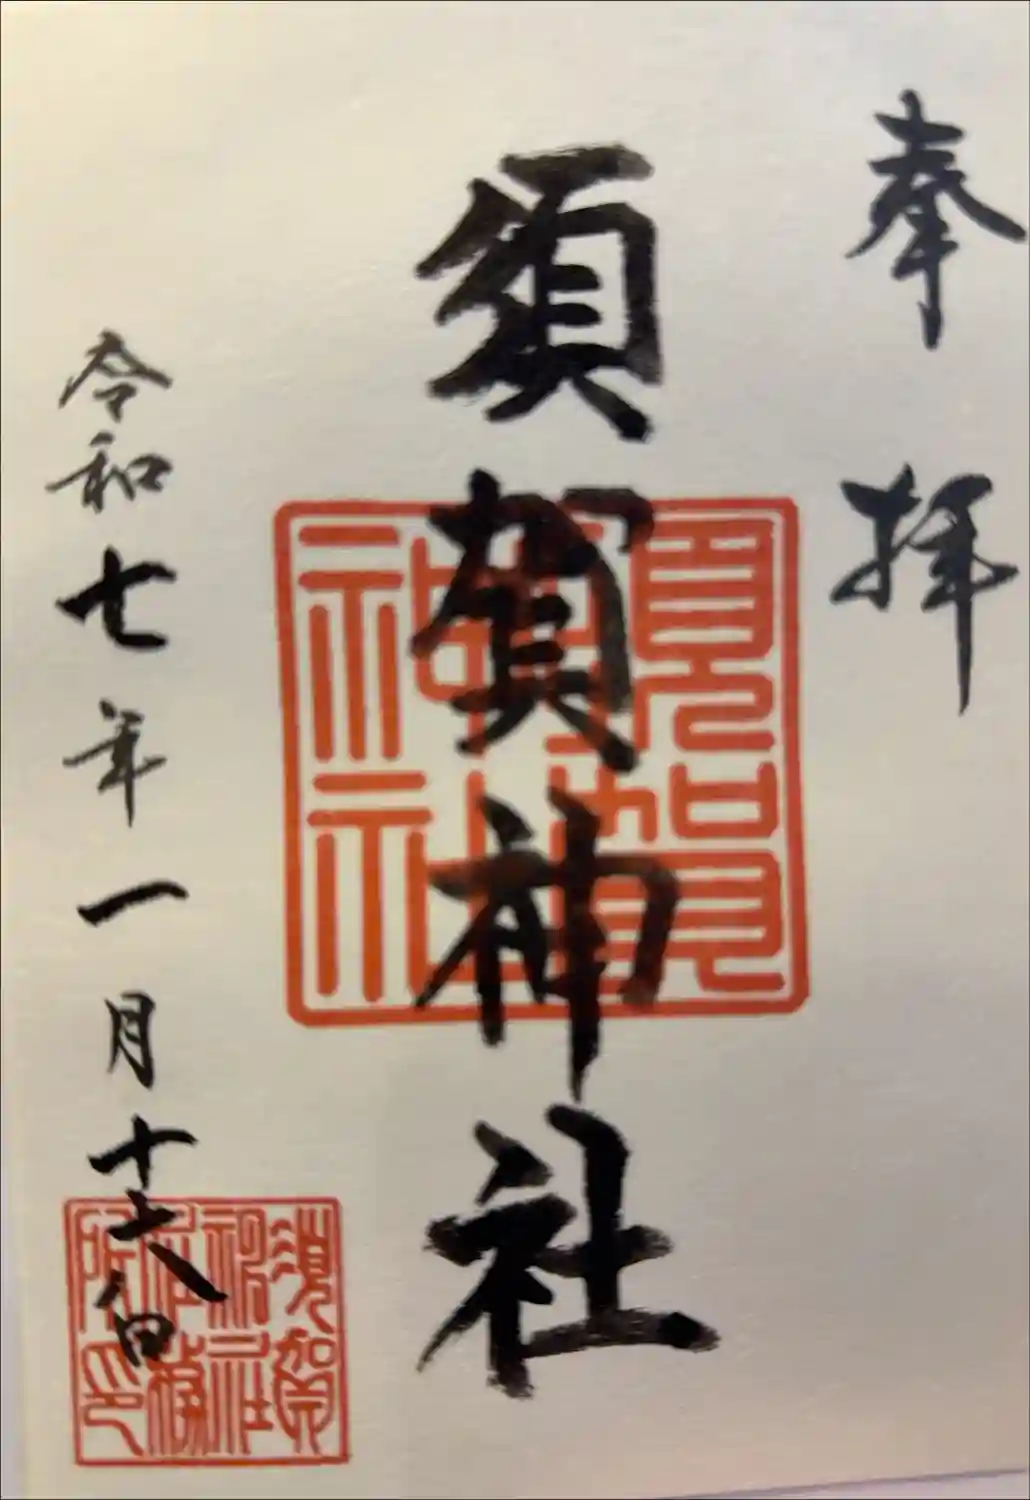 奉拝
須賀神社
須賀
神社
令和七年一月十六日
須賀
神社
社務
所印